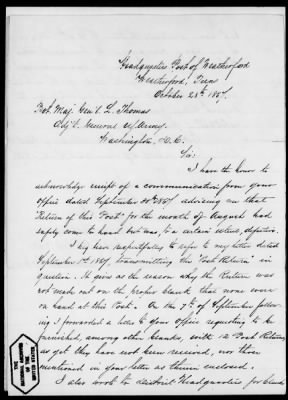 Headquarters Post of Weatherford
Weatherford, Texas
October 28th 1867.
Bvt. Maj. Gen'l. L. Thomas
Adj't. General of Army.
Washington, D.C.
Sir:
I have the honor to
acknowledge receipt of a communication from your
office dated September 1867 advising me that
"Return of this Post" for the month of August had
safely come to hand but was, to a certain extent, defective.
I beg leave respectfully to refer to my letter dated
September 1st 1867, transmitting the "Post Return" in
question. It gives as the reason why the Return was
not made out on the proper blank that none were
on hand at this Post. On the 7th of September follow-
ing I forwarded a letter to your Office requesting to be
furnished, among other blanks, with 12 Post Returns,
as yet they have not been received, nor those
mentioned in your letter as therein enclosed.
I also wrote to district Headquarters for blank
THE NATIONAL ARCHIVES
OF THE
UNITED STATES